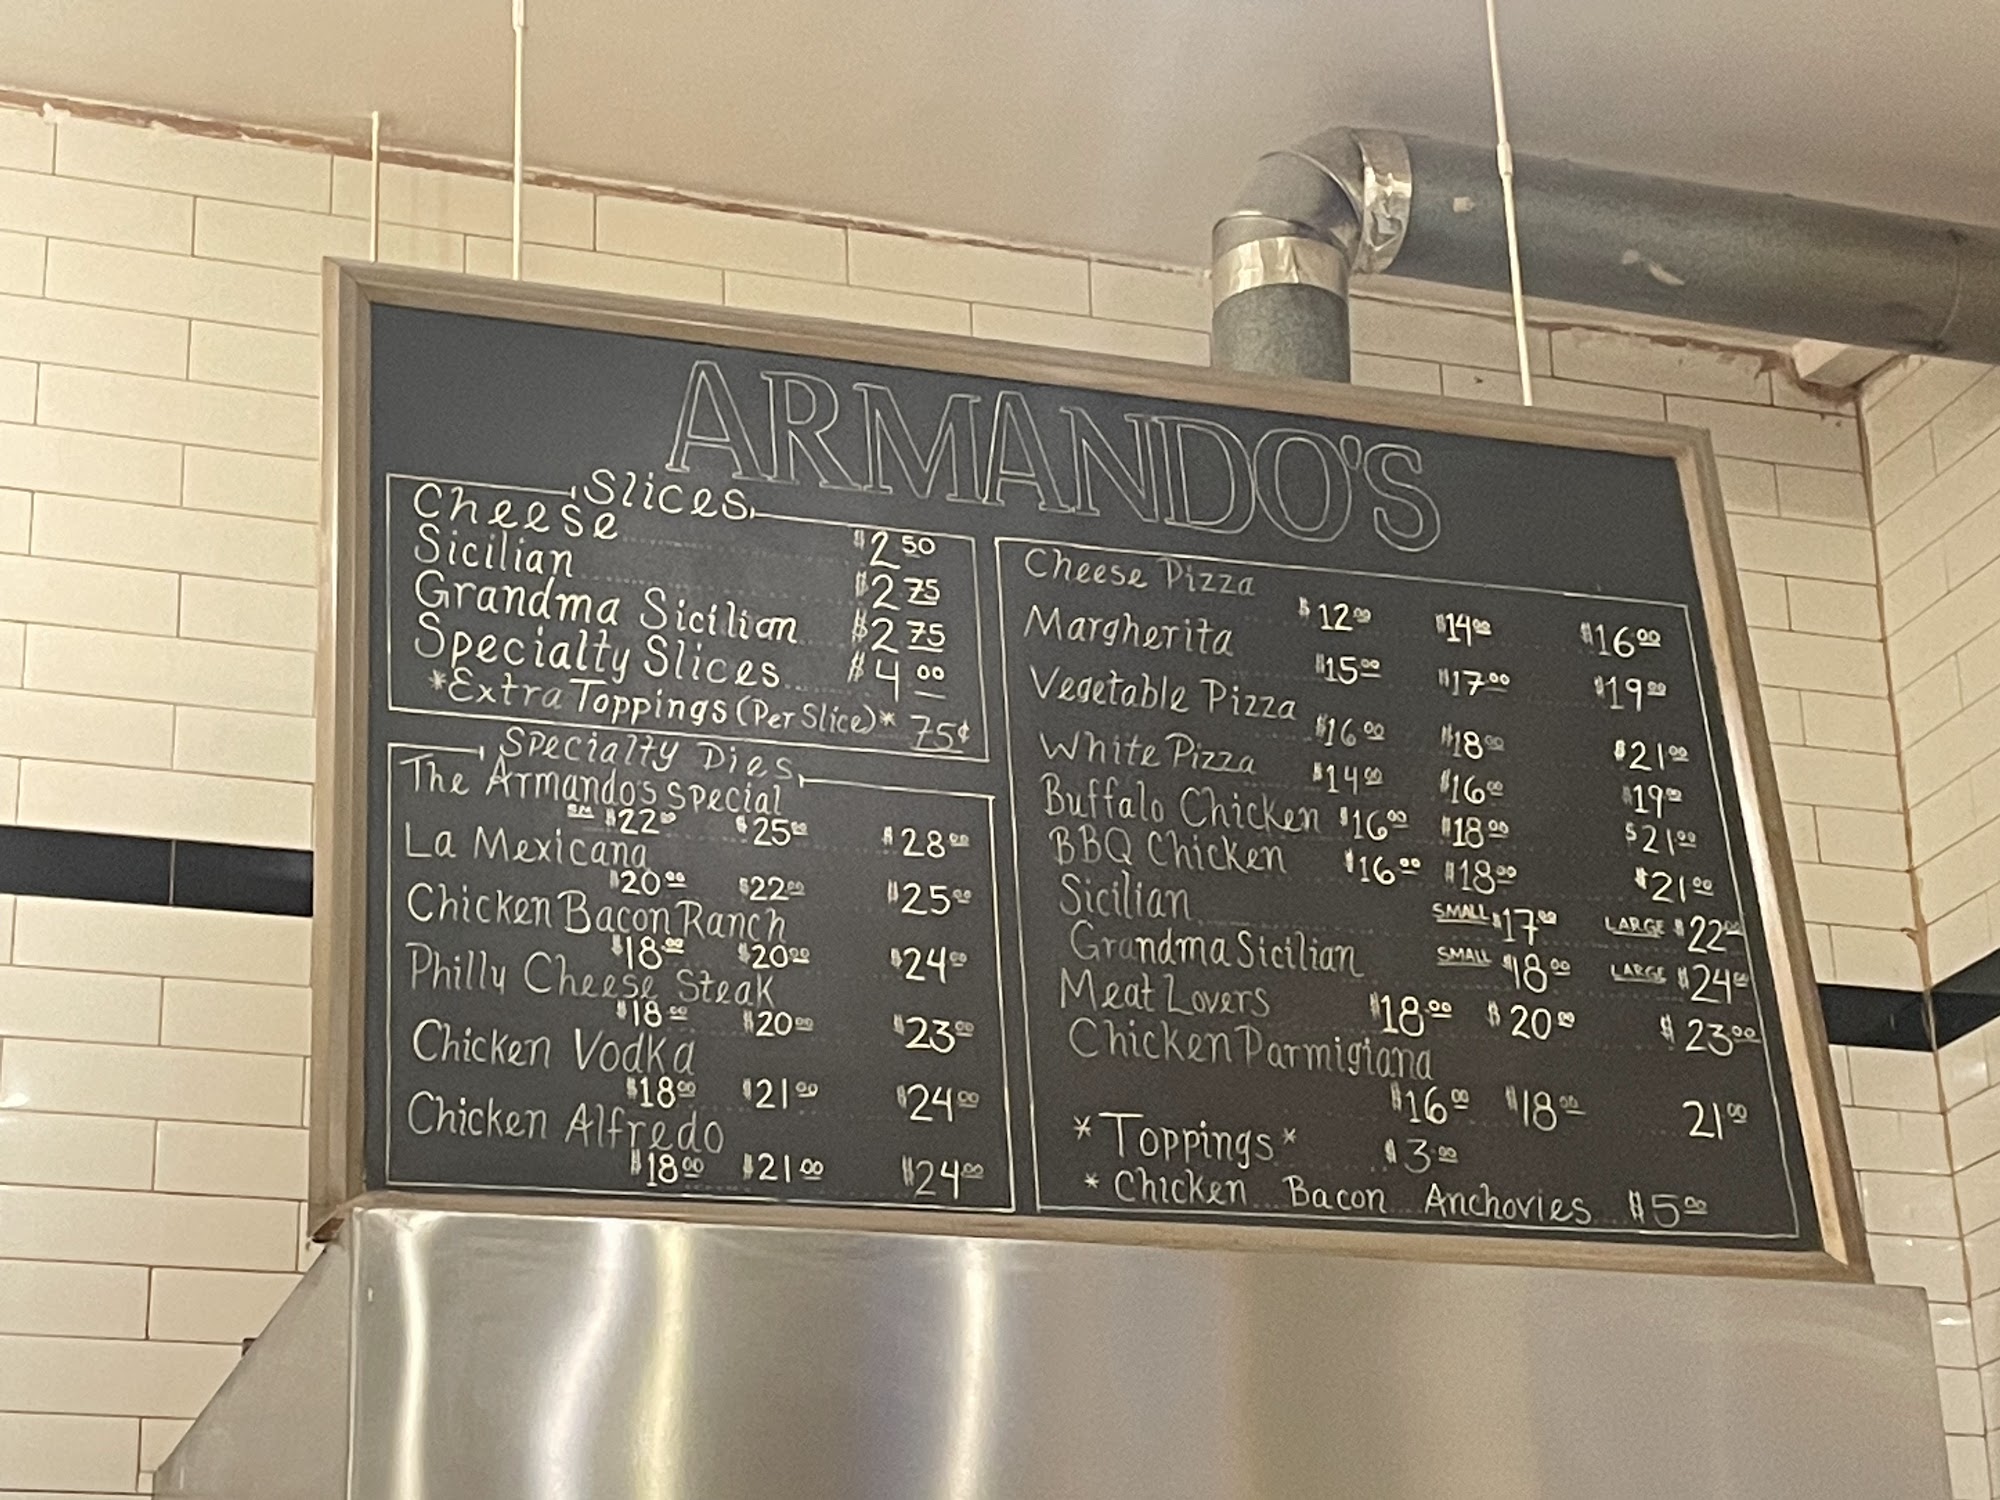 ARMANDO'S
Slices
Cheese $2.50
Sicilian $2.75
Grandma Sicilian $2.75
Specialty Slices $4.00
*Extra Toppings (Per Slice)* 75¢
Specialty Pies
The Armando's Special
SM $22.00 $25.00 $28.00
La Mexicana
$20.00 $22.00 $25.00
Chicken Bacon Ranch
$18.00 $20.00 $24.00
Philly Cheese Steak
$18.00 $20.00 $23.00
Chicken Vodka
$18.00 $21.00 $24.00
Chicken Alfredo
$18.00 $21.00 $24.00
Cheese Pizza $12.00 $14.00 $16.00
Margherita $15.00 $17.00 $19.00
Vegetable Pizza $16.00 $18.00 $21.00
White Pizza $14.00 $16.00 $19.00
Buffalo Chicken $16.00 $18.00 $21.00
BBQ Chicken $16.00 $18.00 $21.00
Sicilian SMALL $17.00 LARGE $22.00
Grandma Sicilian SMALL $18.00 LARGE $24.00
Meat Lovers $18.00 $20.00 $23.00
Chicken Parmigiana
$16.00 $18.00 21.00
*Toppings* $3.00
*Chicken Bacon Anchovies $5.00